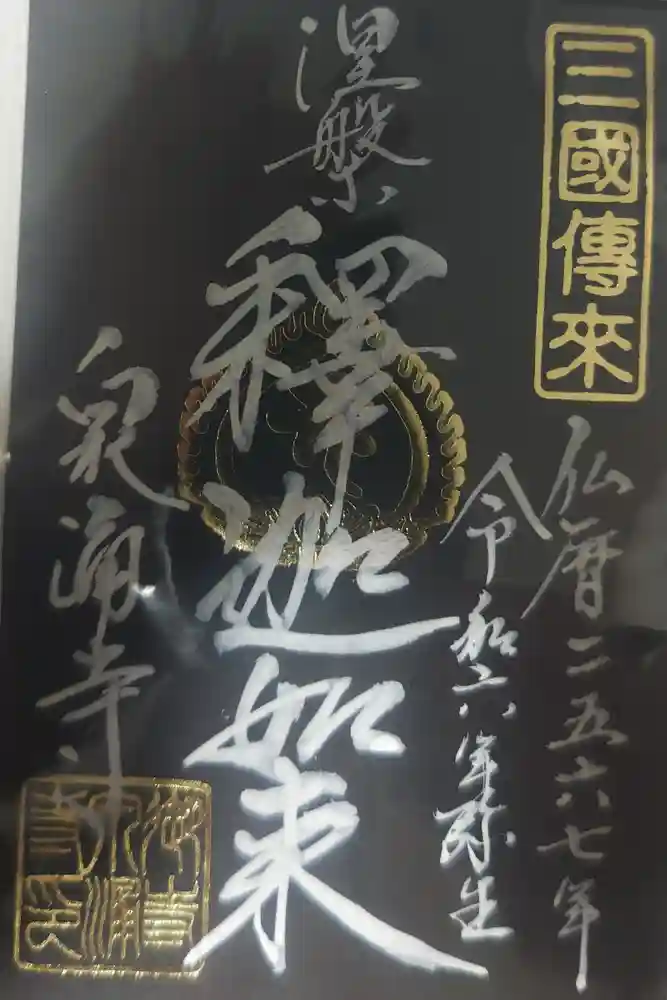 三國傳來
仏暦二五六七年
令和六年弥生
涅槃
釋迦如来
泉涌寺